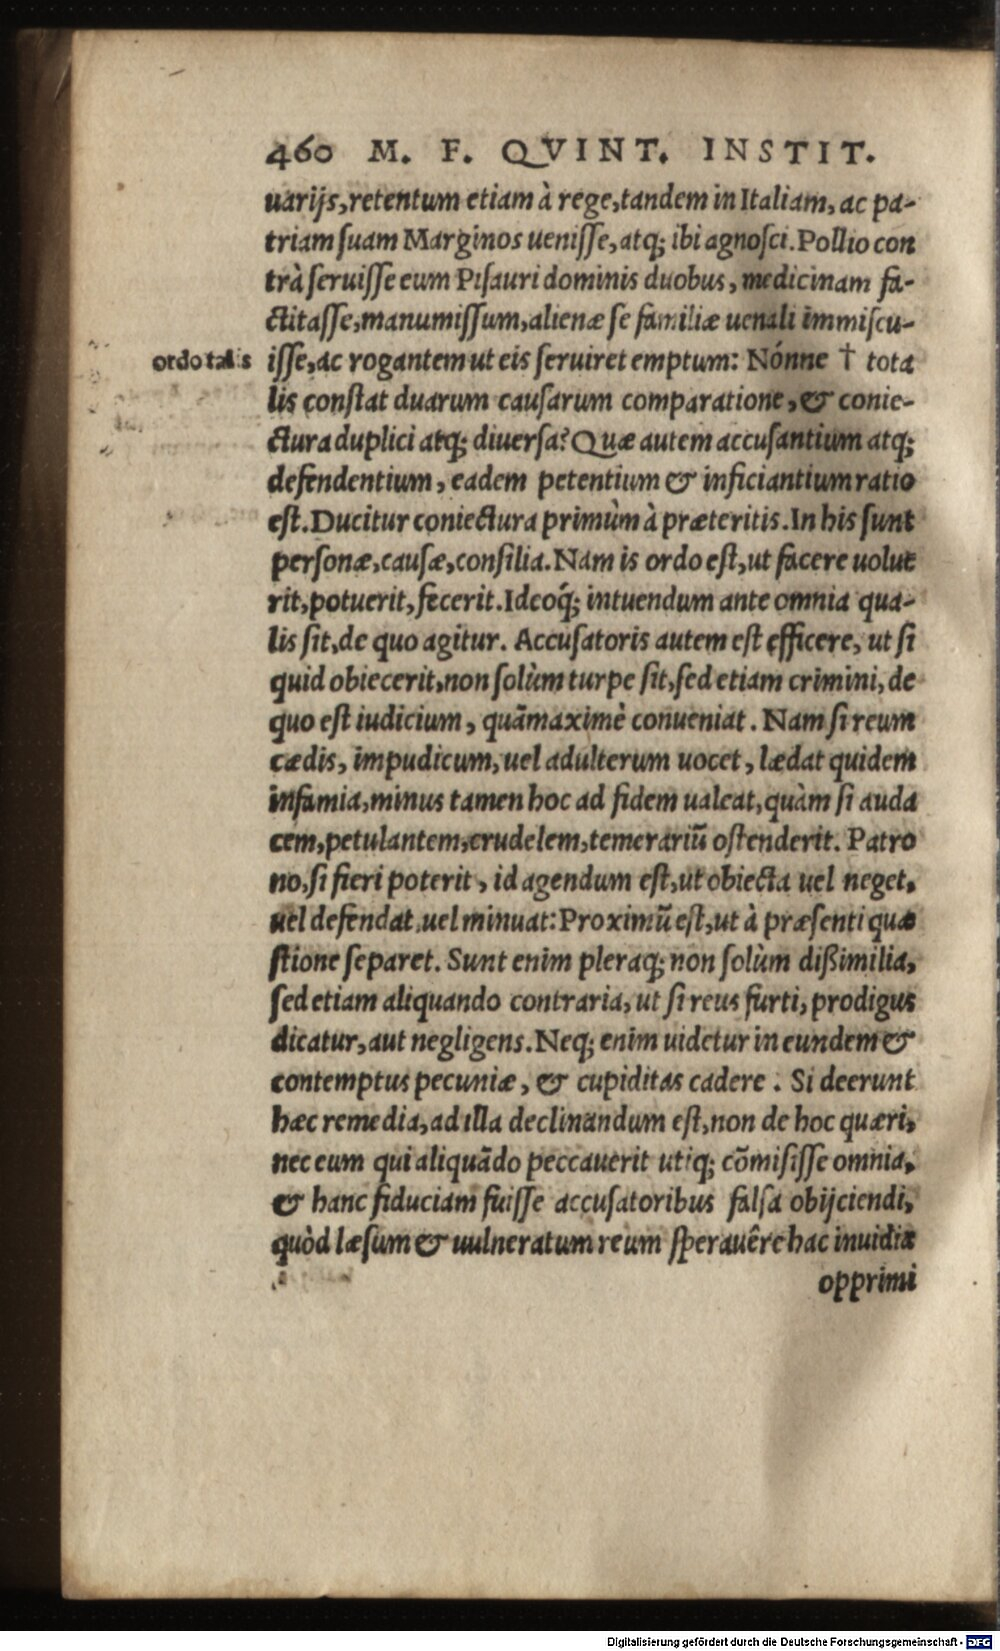 460 M. F. QVINT. INSTIT.
uarijs, retentum etiam à rege, tandem in Italiam, ac pa-
triam suam Marginos uenisse, atq; ibi agnosci. Pollio con
trà seruisse eum Pisauri dominis duobus, medicinam fa-
ctitasse, manumissum, alienæ se familiæ uenali immiscu-
ordo talis
isse, ac rogantem ut eis seruiret emptum: Nónne † tota
lis constat duarum causarum comparatione, & conie-
ctura duplici atq; diuersa? Quæ autem accusantium atq;
defendentium, eadem petentium & inficiantium ratio
est. Ducitur coniectura primùm à præteritis. In his sunt
personæ, causæ, consilia. Nam is ordo est, ut facere uolue
rit, potuerit, fecerit. Ideoq́; intuendum ante omnia qua-
lis sit, de quo agitur. Accusatoris autem est efficere, ut si
quid obiecerit, non solùm turpe sit, sed etiam crimini, de
quo est iudicium, quãmaximè conueniat. Nam si reum
cædis, impudicum, uel adulterum uocet, lædat quidem
infamia, minus tamen hoc ad fidem ualeat, quàm si auda
cem, petulantem, crudelem, temerariũ ostenderit. Patro
no, si fieri poterit, id agendum est, ut obiecta uel neget,
uel defendat, uel minuat: Proximũ est, ut à præsenti quæ
stione separet. Sunt enim pleraq; non solùm dißimilia,
sed etiam aliquando contraria, ut si reus furti, prodigus
dicatur, aut negligens. Neq; enim uidetur in eundem &
contemptus pecuniæ, & cupiditas cadere. Si deerunt
hæc remedia, ad illa declinandum est, non de hoc quæri,
nec eum qui aliquãdo peccauerit utiq; cõmisisse omnia,
& hanc fiduciam fuisse accusatoribus falsa obijciendi,
quòd læsum & uulneratum reum sperauêre hac inuidia
opprimi
Digitalisierung gefördert durch die Deutsche Forschungsgemeinschaft - DFG